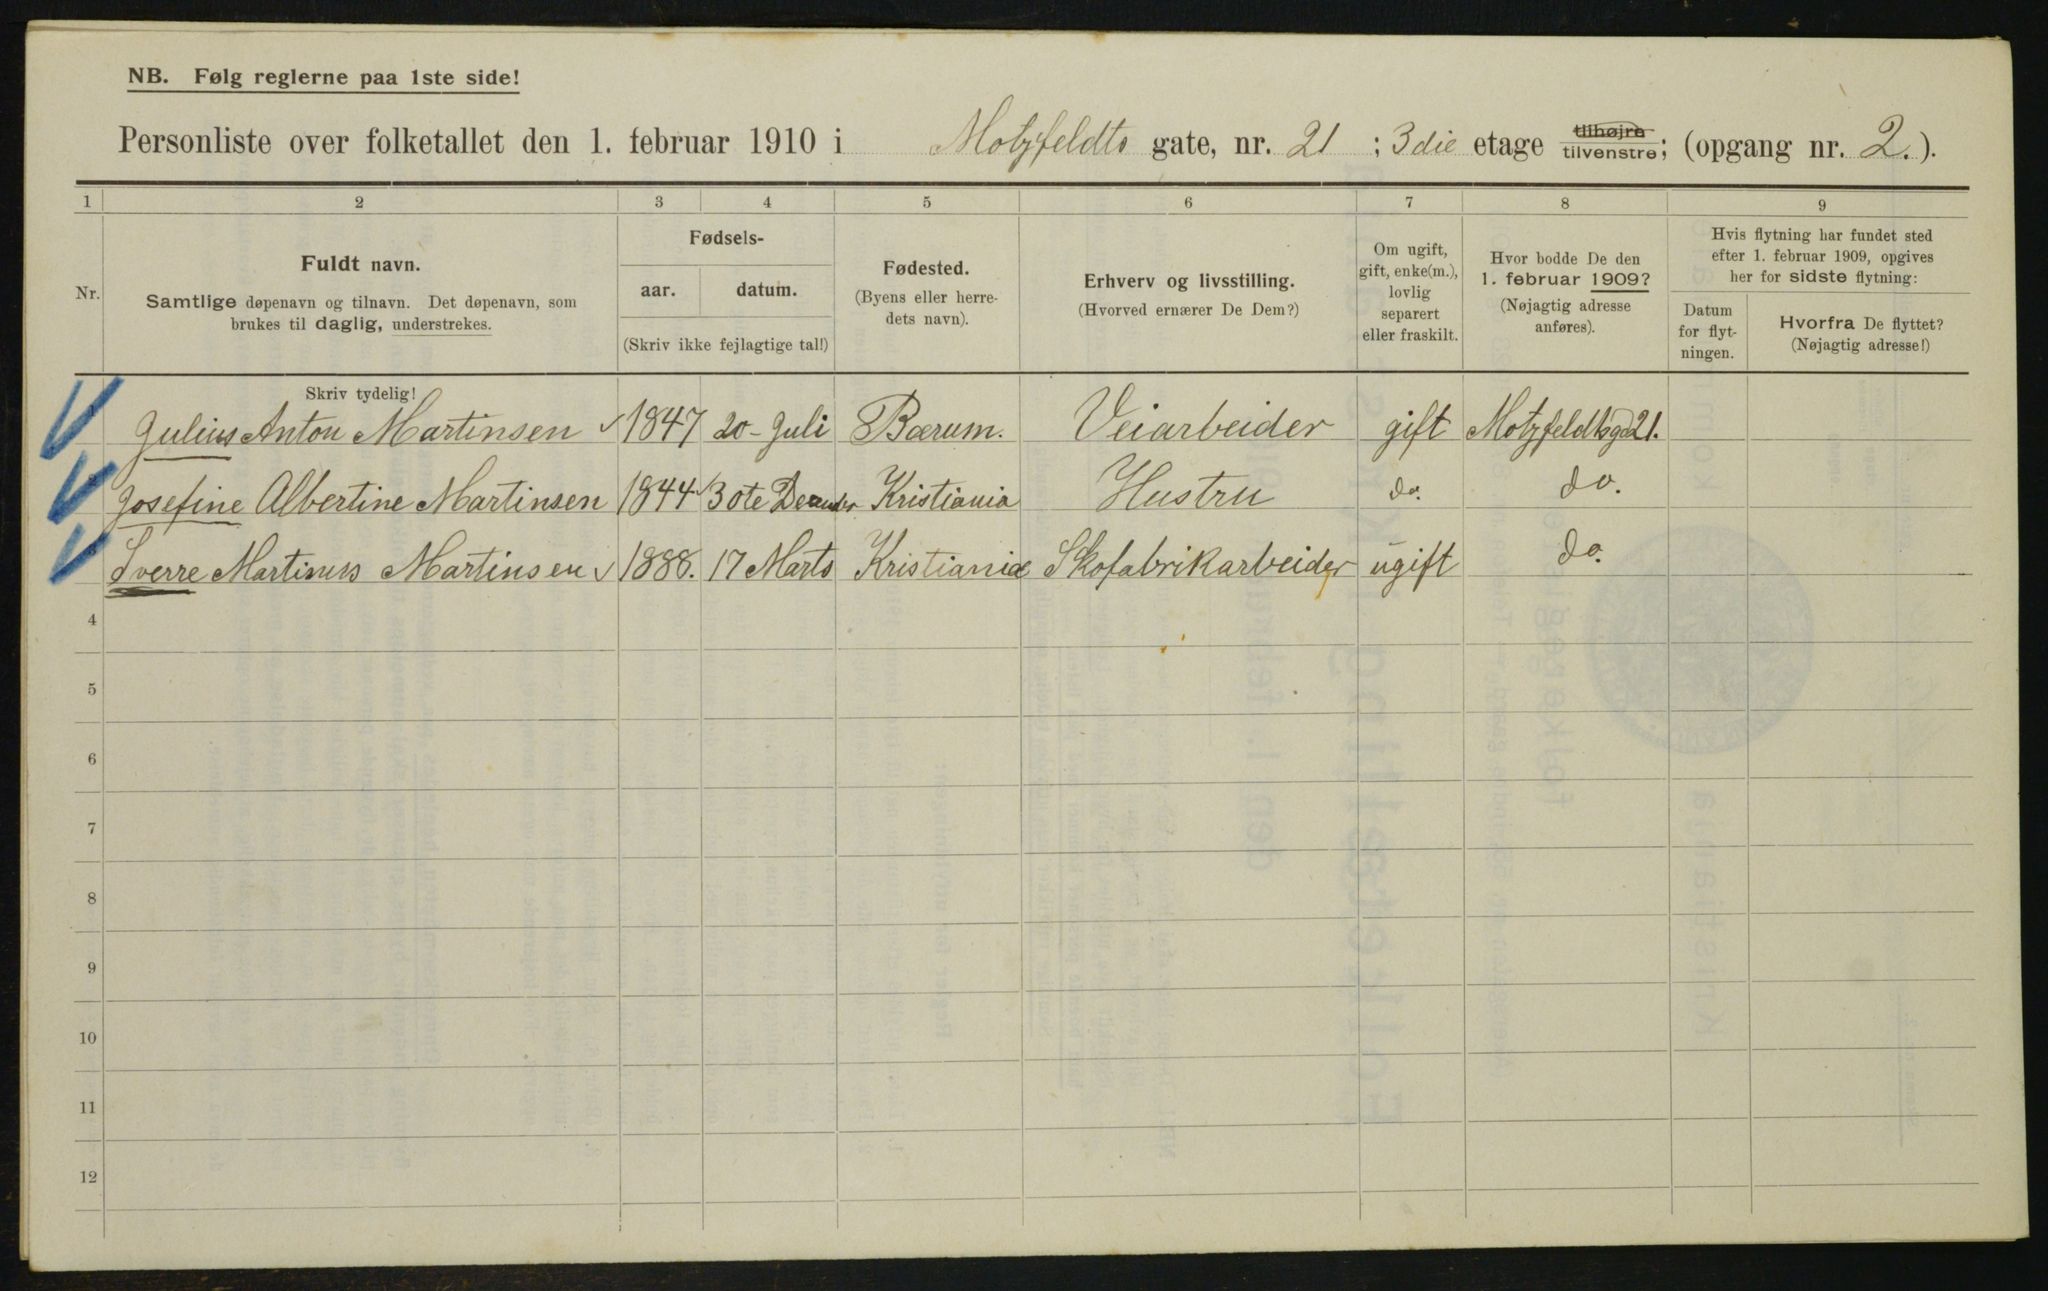 NB. Følg reglerne paa 1ste side!
Personliste over folketallet den 1. februar 1910 i Motzfeldts gate, nr. 21 ; 3die etage tilhøjre tilvenstre; (opgang nr. 2.).
1 2 3 4 5 6 7 8 9
Nr.
Fuldt navn.
Samtlige døpenavn og tilnavn. Det døpenavn, som
brukes til daglig, understrekes.
Fødsels-
aar. datum.
(Skriv ikke fejlagtige tal!)
Fødested.
(Byens eller herre-
dets navn).
Erhverv og livsstilling.
(Hvorved ernærer De Dem?)
Om ugift,
gift, enke(m.),
lovlig
separert
eller fraskilt.
Hvor bodde De den
1. februar 1909?
(Nøjagtig adresse
anføres).
Hvis flytning har fundet sted
efter 1. februar 1909, opgives
her for sidste flytning:
Datum
for flyt-
ningen.
Hvorfra De flyttet?
(Nøjagtig adresse!)
Skriv tydelig!
1 Julius Anton Martinsen 1847 20 - Juli Bærum. Veiarbeider gift Motzfeldtsgd 21.
2 Josefine Albertine Martinsen 1844 30te Kristiania Hustru do. do.
3 Sverre Martinus Martinsen 1888. 17 Marts Kristiania Skofabrikarbeider ugift do.
4
5
6
7
8
9
10
11
12